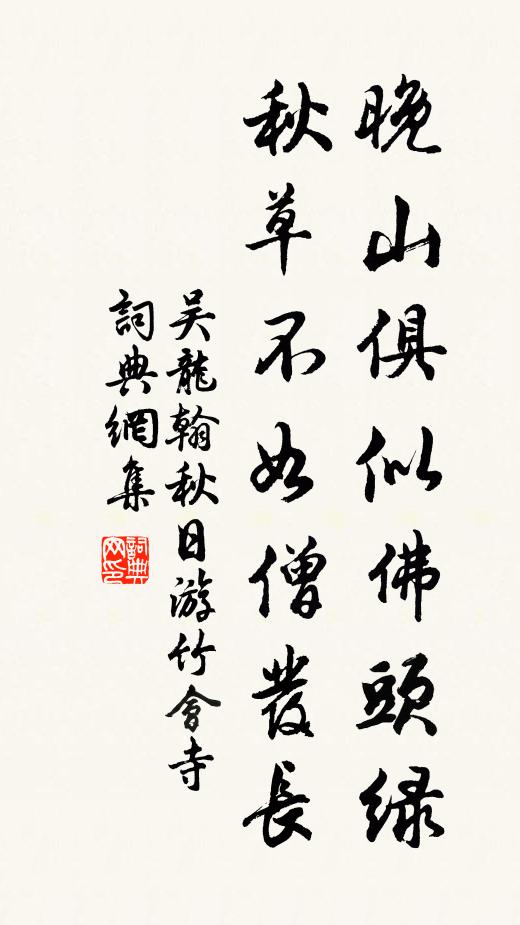 晚山俱似佛頭緑
秋草不如僧發長
吴龍翰秋日游竹會寺
詞典網集
詞典網印